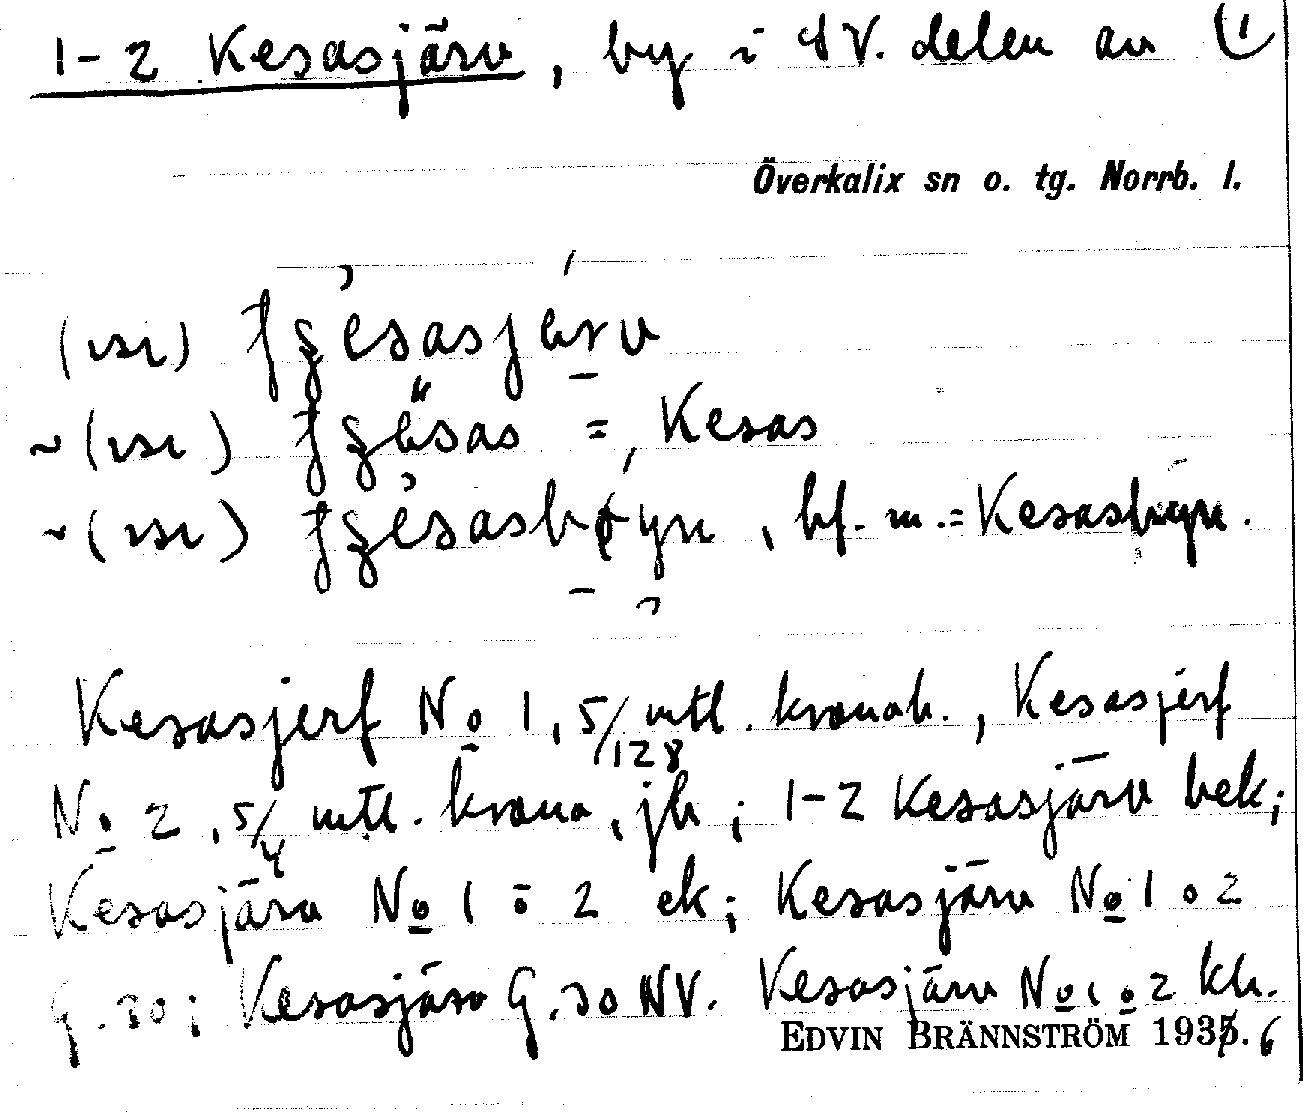 1-2 Kesasjärv, by i SV. delen av (1
Överkalix sn o. tg. Norrb. l.
(ısı)
~(ısı) = Kesas
~(ısı) , bf. m. = Kesasbyn.
Kesasjerf No 1, 5/128 mtl. kronoh., Kesasjerf
No 2, 5/4 mtl. krono, jb; 1-2 Kesasjärv bek;
Kesasjärv No 1 o 2 ek; Kesasjärv No 1 o 2
G. 30; Kesasjärv G. 30 NV. Kesasjärv No 1 o 2 kh.
EDVIN BRÄNNSTRÖM 1935. 6